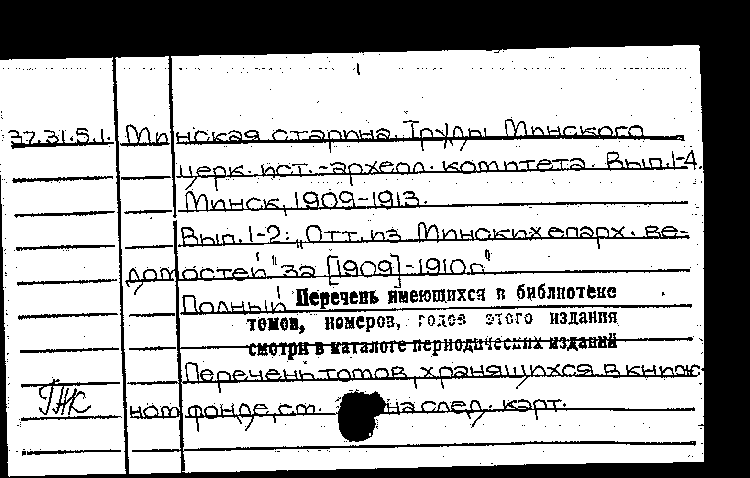 37.31.5.1. Минская старина. Труды Минского
церк. ист.-археол. комитета. Вып. 1-4.
Минск, 1909-1913.
Вып. 1-2: „Отт. из Минских епарх. ве-
домостей" за [1909]-1910 г."
Полный Перечень имеющихся в библиотеке
томов, номеров, годов этого издания
смотри в каталоге периодических изданий
Перечень томов, хранящихся в книж-
ГЖК ном фонде, см. на след. карт.